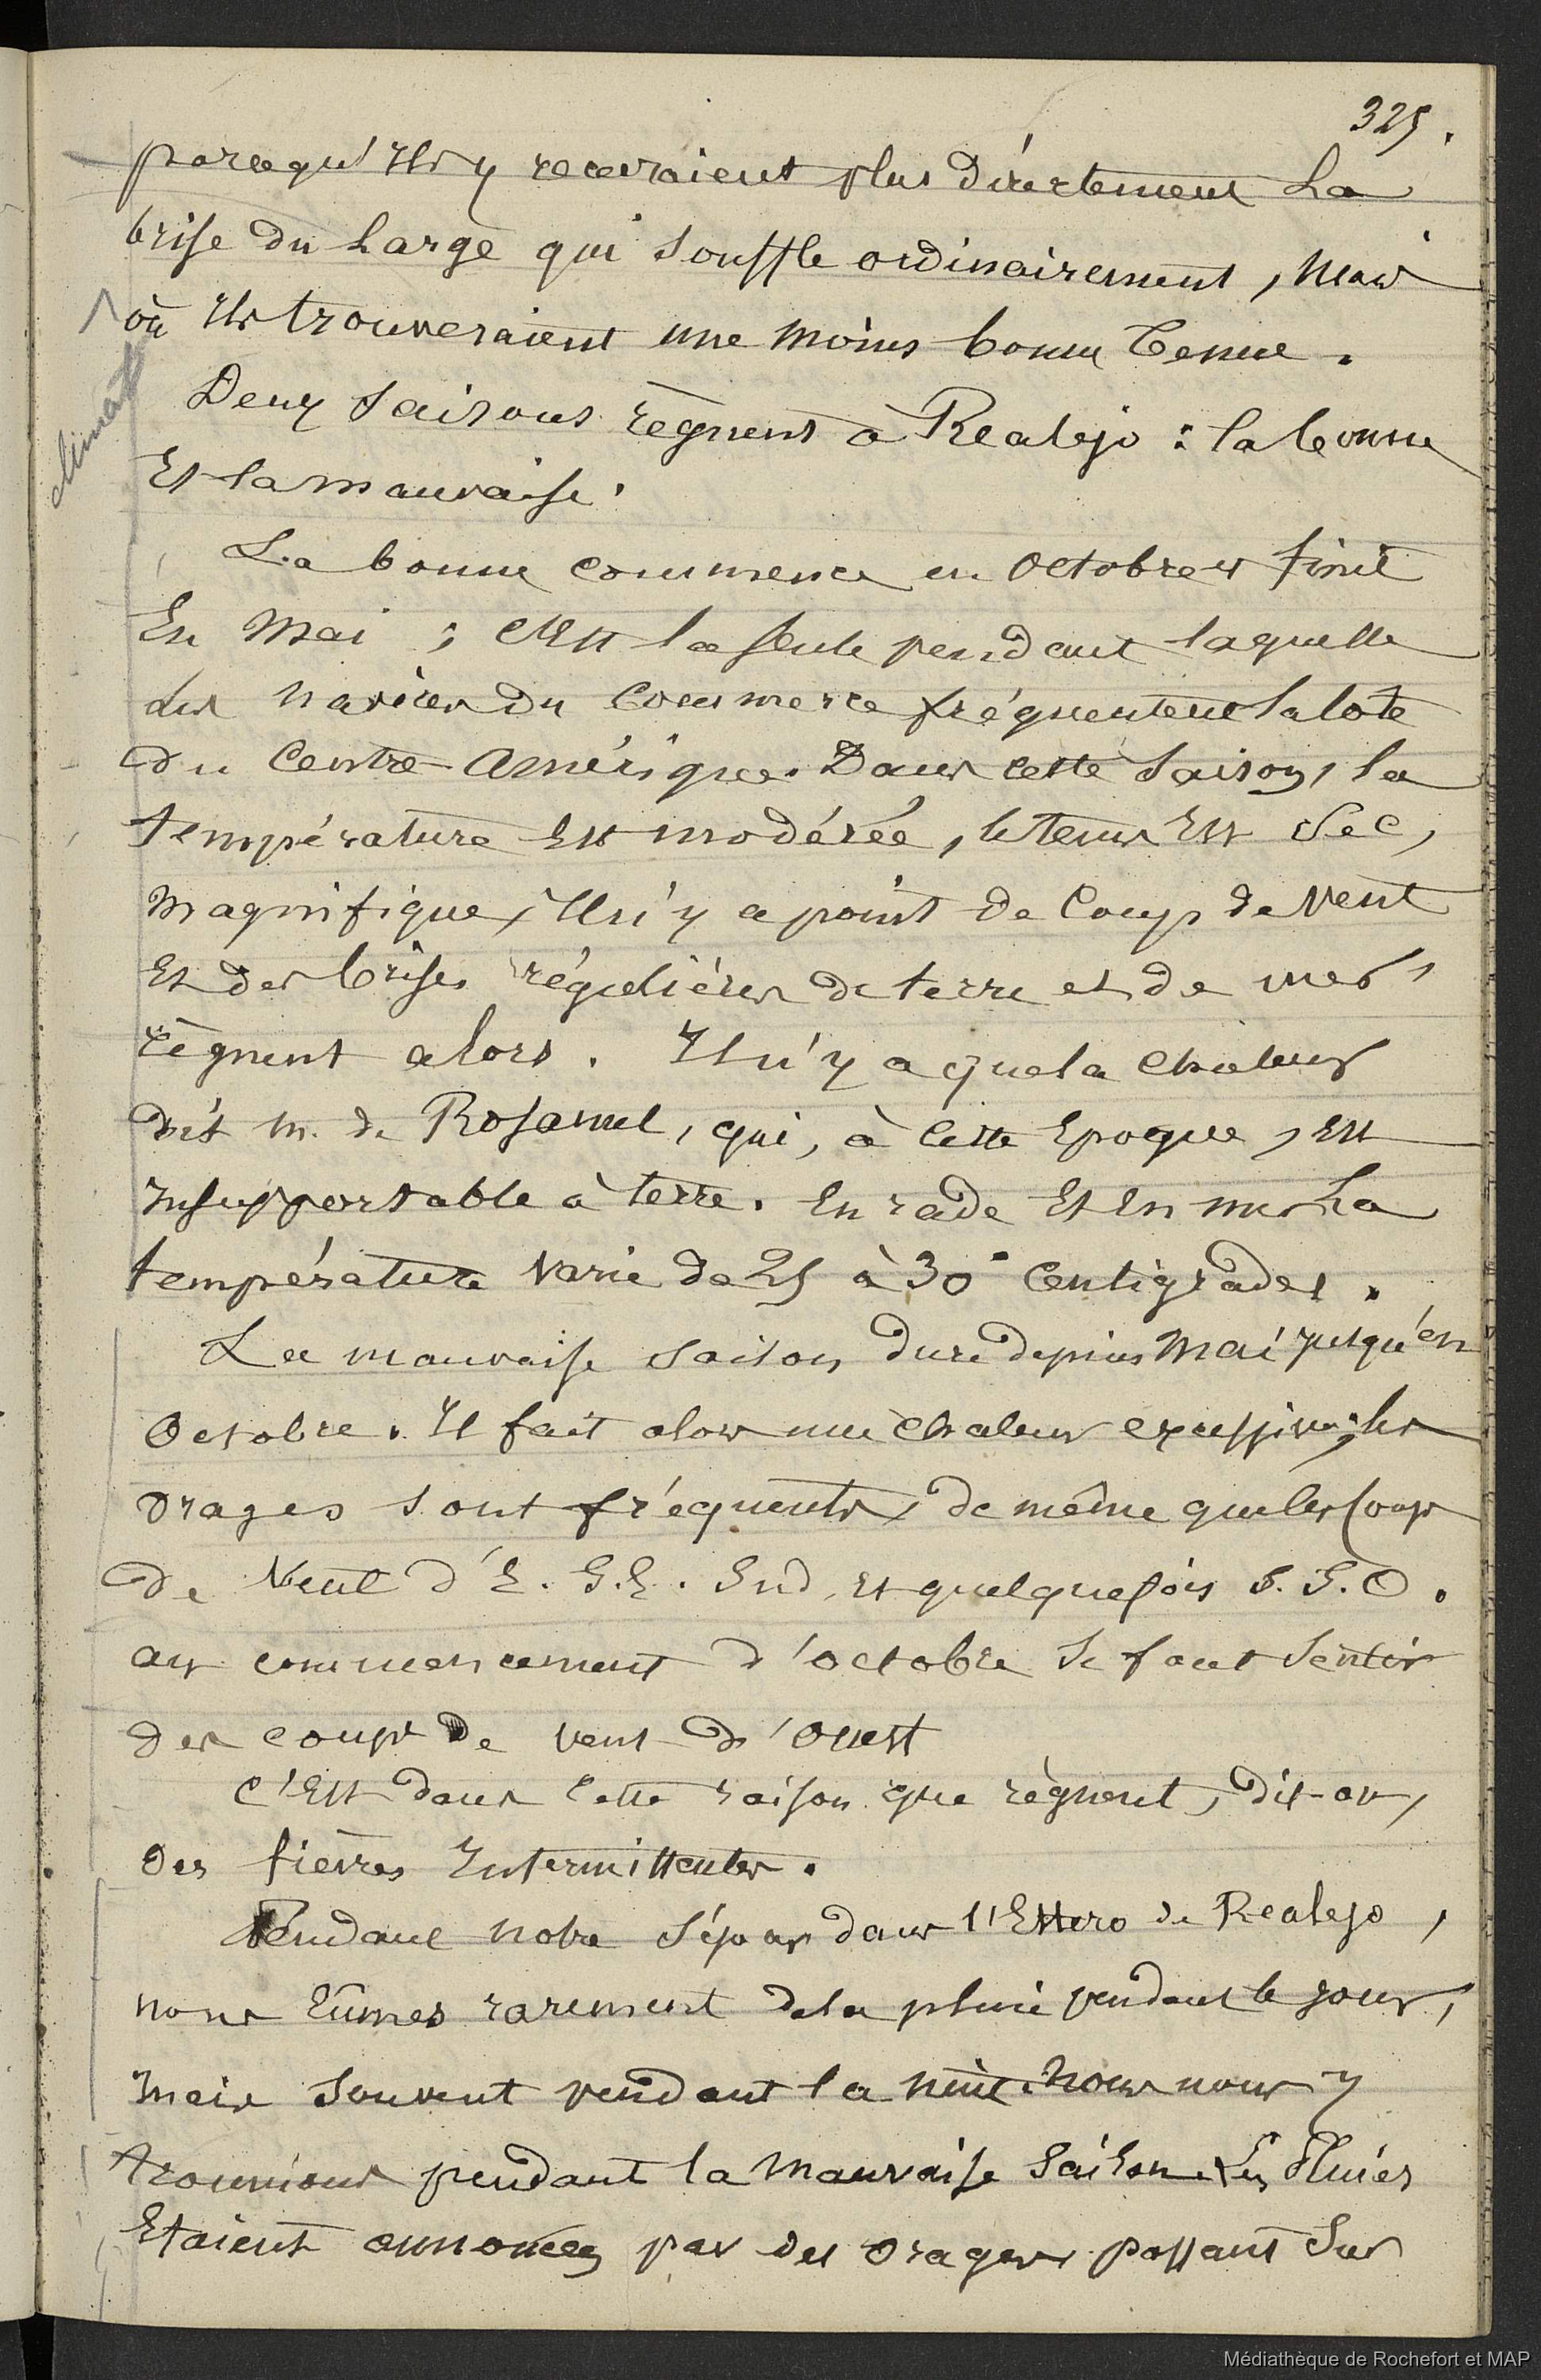 325.
parcequ'ils y recevraient plus directement la
brise du large qui souffle ordinairement, mais
où ils trouveraient une moins bonne tenue.
climat
Deux saisons règnent à Realejo : la bonne
Et la mauvaise.
La bonne commence en octobre et finit
En Mai ; c'Est la seule pendant laquelle
les navires du Commerce fréquentent la Côte
du Centre-Amérique. Dans cette saison, la
température Est modérée, le tems Est sec,
magnifique, Il n'y a point de Coups de Vent
Et des brises régulières de terre et de mer,
règnent alors. Il n'y a que la Chaleur
dit M. de Rosamel, qui, à Cette Epoque, Est
Insupportable à terre. En rade Et En mer La
température Varie de 25 à 30° Centigrades.
La mauvaise saison dure depuis Mai jusqu'en
Octobre. Il fait alors une chaleur excessive; les
orages sont fréquents, de même que les Coups
de Vent d'E. S.E. Sud, Et quelquefois S. S. O.
au commencement d'octobre se font Sentir
des coups de vent d'ouest
C'Est dans Cette saison que règnent, dit-on,
des fièvres Intermittentes.
Pendant notre Séjour dans l'Estero de Realejo,
nous Eûmes rarement de la pluie pendant le jour,
mais souvent pendant la nuit. Nous nous y
trouvions pendant la Mauvaise Saison. Les Pluies
Etaient annoncées par des orages passant Sur
Médiathèque de Rochefort et MAP